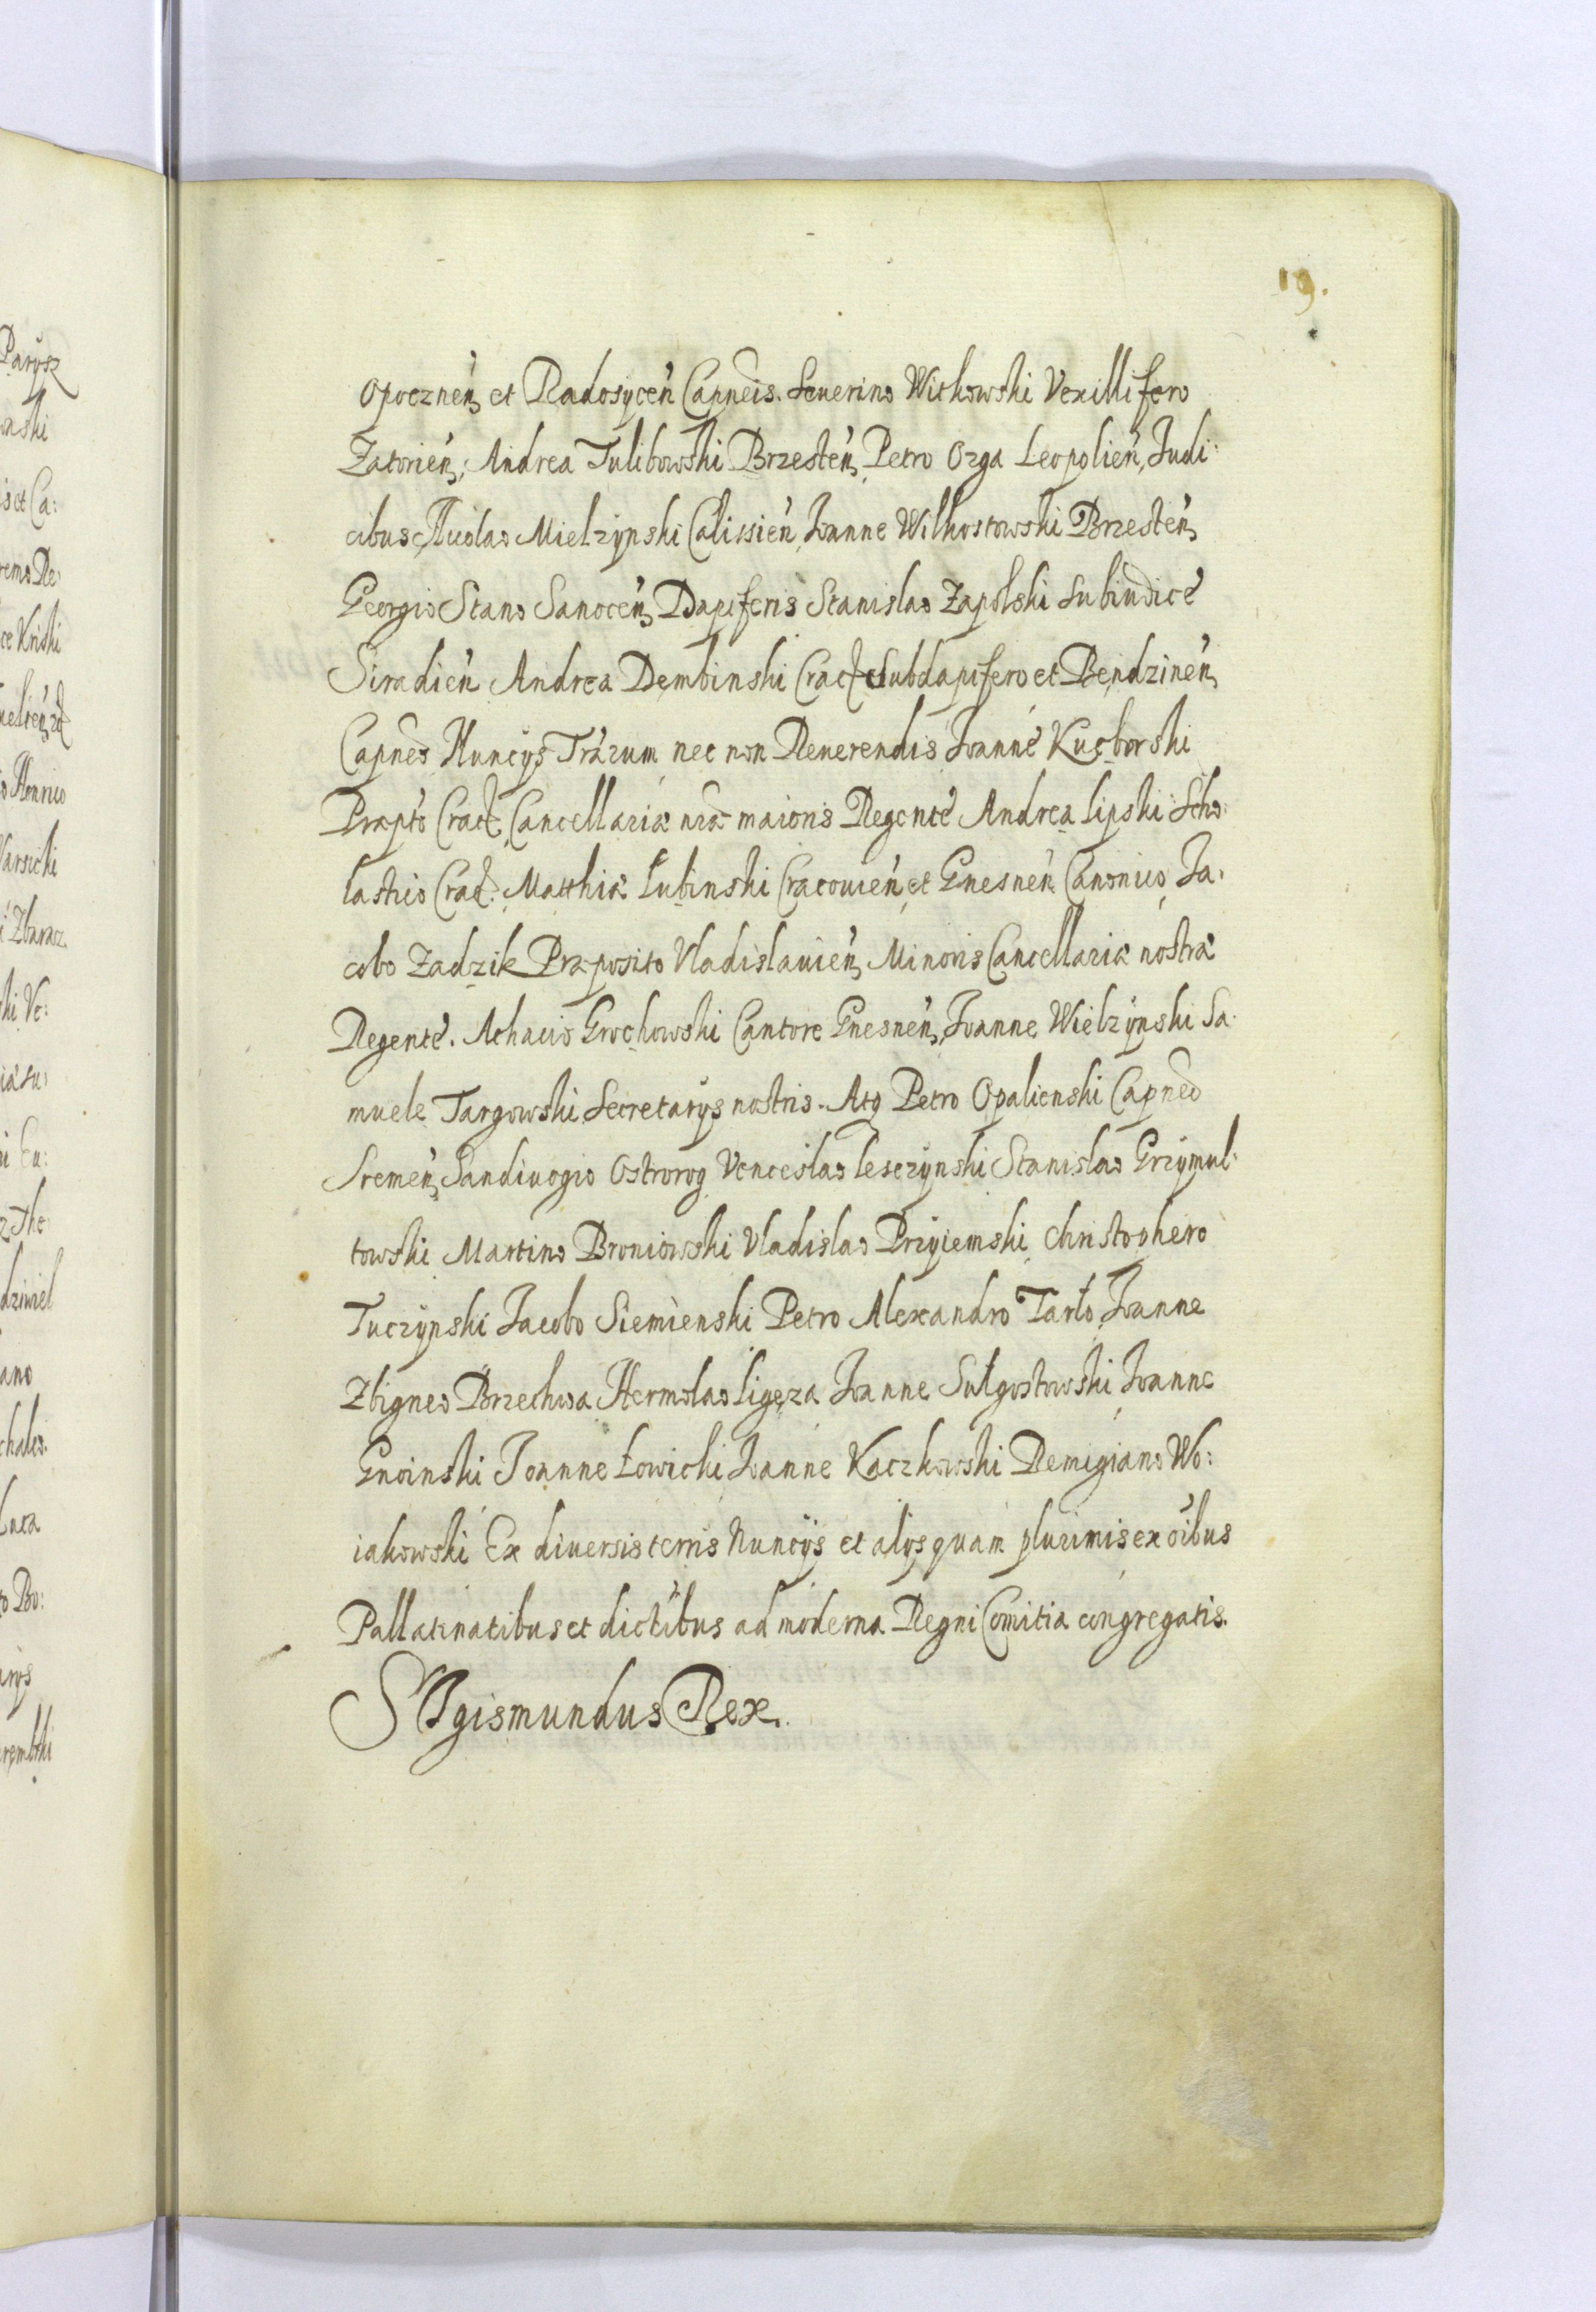 19.
Opocznen̄ et Radosycen̄ Capneis. Seuerino Witkowski Vexillifero
Zatorien̄, Andrea Tulibowski Brzesten̄, Petro Ozga Leopolien̄, Judi
cibus Nicolao Mielzynski Calissien̄, Joanne Wilkostowski Brzesten̄,
Georgio Stano Sanocen̄, Dapiferis Stanislao Zapolski Subiudice
Siradien̄ Andrea Dembinski Crac. Subdapifero et Bendzinen̄,
Capneo Nuncÿs Trarum nec non Reuerendis Joanne Kucborski
Præpto Crac. Cancellariæ nræ maioris Regente Andrea Lipski Scho:
lastico Crac. Matthia Lubinski Cracouien̄, et Gnesnen̄ Canonico, Ja:
cobo Zadzik Præposito Vladislauien̄, Minoris Cancellariæ nostræ
Regente. Achacio Grochowski Cantore Gnesnen̄, Joanne Wielzÿnski Sa:
muele Targowski Secretarÿs nostris. Atq Petro Opalienski Capneo
Sremen̄, Sandiuogio Ostrorog Venceslao Lesczÿnski Stanislao Grzÿmul:
towski Martino Broniowski Vladislao Przÿiemski, Christophero
Tuczÿnski Jacobo Siemienski Petro Alexandro Tarło, Joanne
Zbigneo Brzechwa Hermolao Ligęza Joanne Sułgostowski, Joanne
Gnoinski Joanne Łowicki Joanne Kaczkowski Remigiano Wo:
iakowski Ex diuersis terris Nuncÿs et alÿs quam plurimis ex oībus
Pallatinatibus et dictībus ad moderna Regni Comitia congregatis.
SIgismundus Rex.
Parÿsz
is et Ca:
ce Kriski
Varsicki
i Zbaraz.
ski Ve: